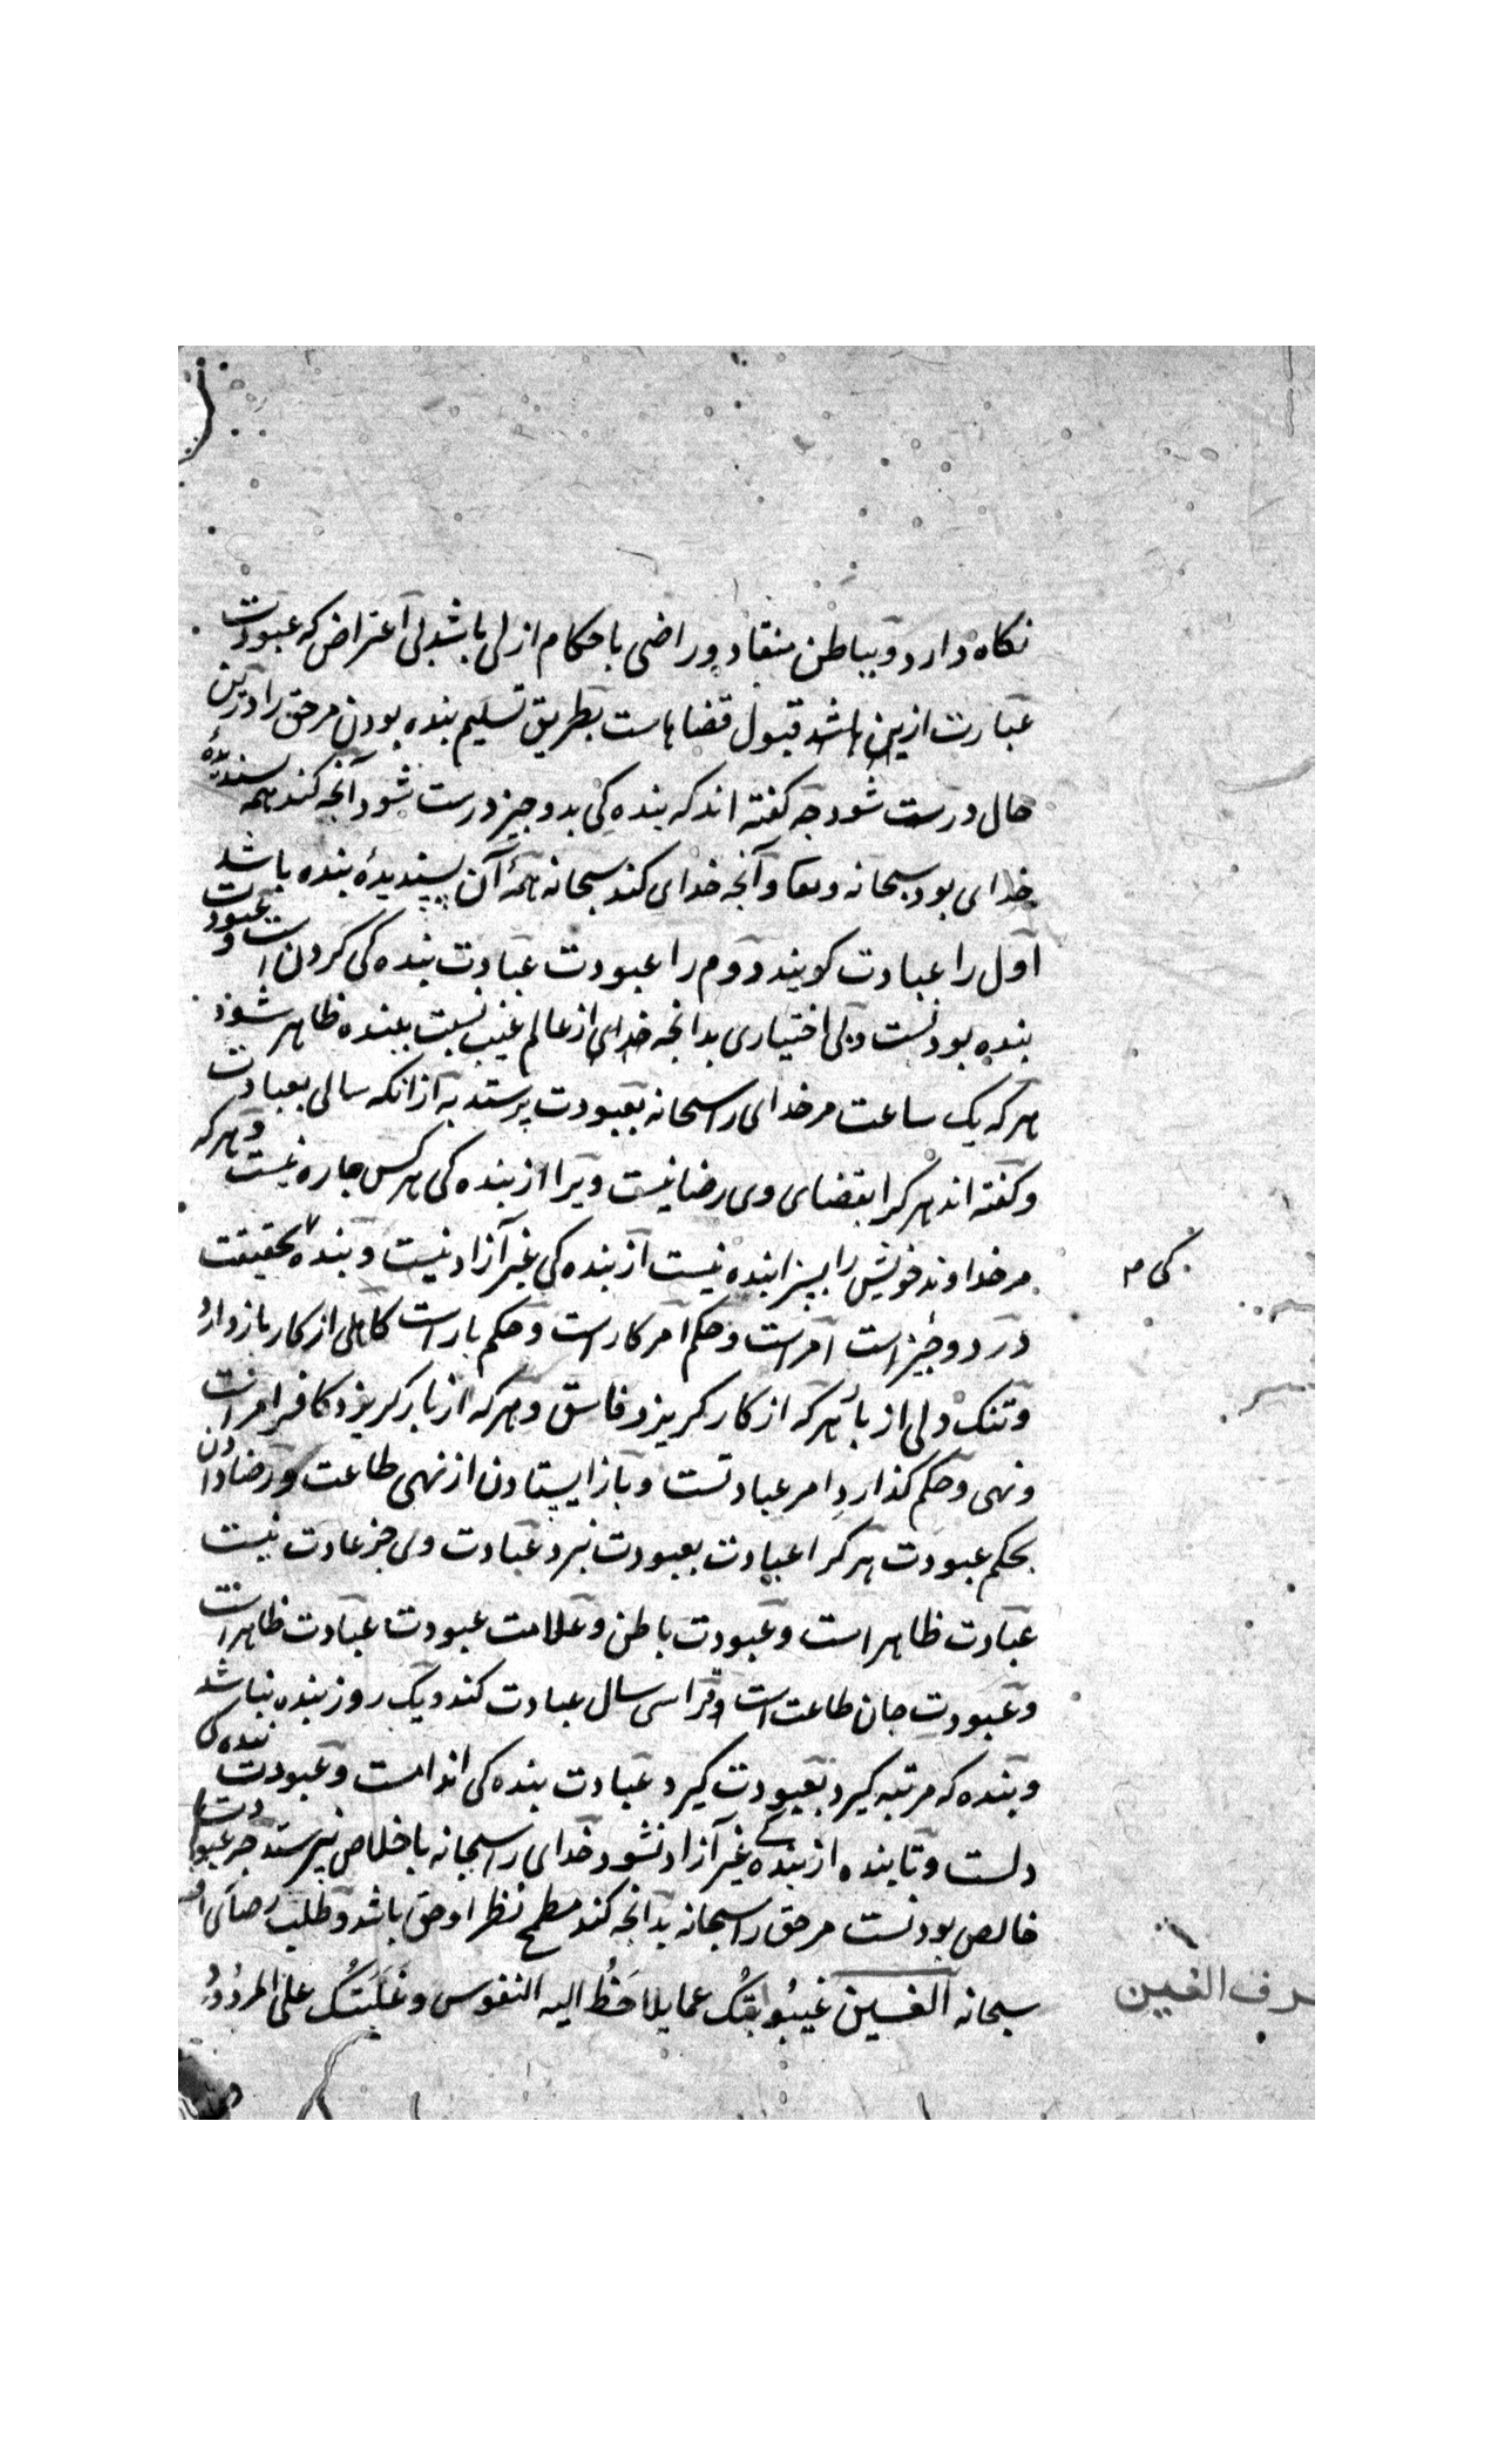 نکاه دارد و بباطن منقاد و راضی باحکام ازلی باشد بی اعتراض که عبودیت
عبارت ازین باشد قبول قضاهاست بطریق تسلیم بنده بودن مرحق را درین
حال درست شود چه کفته اند که بنده کی بدو چیز درست شود آنچه کند همه پسندیدهٔ
خدای بود سبحانه و تعا و آنچه خدای کند سبحانه همهٔ آن پسندیدهٔ بنده باشد
اول را عبادت کویند دوم را عبودت عبادت بنده کی کردن است و عبودت
بنده بودنست و بی اختیاری بدانچه خدای از عالم غیب نسبت ببنده ظاهر شود
هر که یک ساعت مر خدای را سبحانه بعبودت پرستد به از انکه سالی بعبادت
و کفته اند هر کرا بقضای وی رضا نیست ویرا از بنده کی هر کس چاره نیست و هر که
مر خداوند خویش را بسزا بنده نیست از بنده کی غیر آزاد نیست و بنده بحقیقت
کی م
در دو چیز است امر است و حکم امر کار است و حکم بار است کاهلی از کار باز دارد
و تنک دلی از بار هر که از کار کریزد فاسق و هر که از بار کریزد کافر امر است
و نهی و حکم کذارد امر عبادتست و باز ایستادن از نهی طاعت و رضا دادن
بحکم عبودت هر کرا عبادت بعبودت نبرد عبادت وی جز عادت نیست
عبادت ظاهر است و عبودت باطن و علامت عبودت عبادت ظاهر است
و عبودت جان طاعت است و ترا سی سال عبادت کند و یک روز بنده نباشد
و بنده که مرتبه کیرد بعبودت کیرد عبادت بنده کی اندامست و عبودت بنده کی
دلست و تا بنده از بنده کی غیر آزاد نشود خدای را سبحانه باخلاص نپرستد چه عبودت
خالص بودنست مر حق را سبحانه بدانچه کند مطمح نظر او حق باشد و طلب رضای
سبحانه الغین غیبوبتک عما یلاحظ الیه النفوس و غلبتک علی
حرف الغین